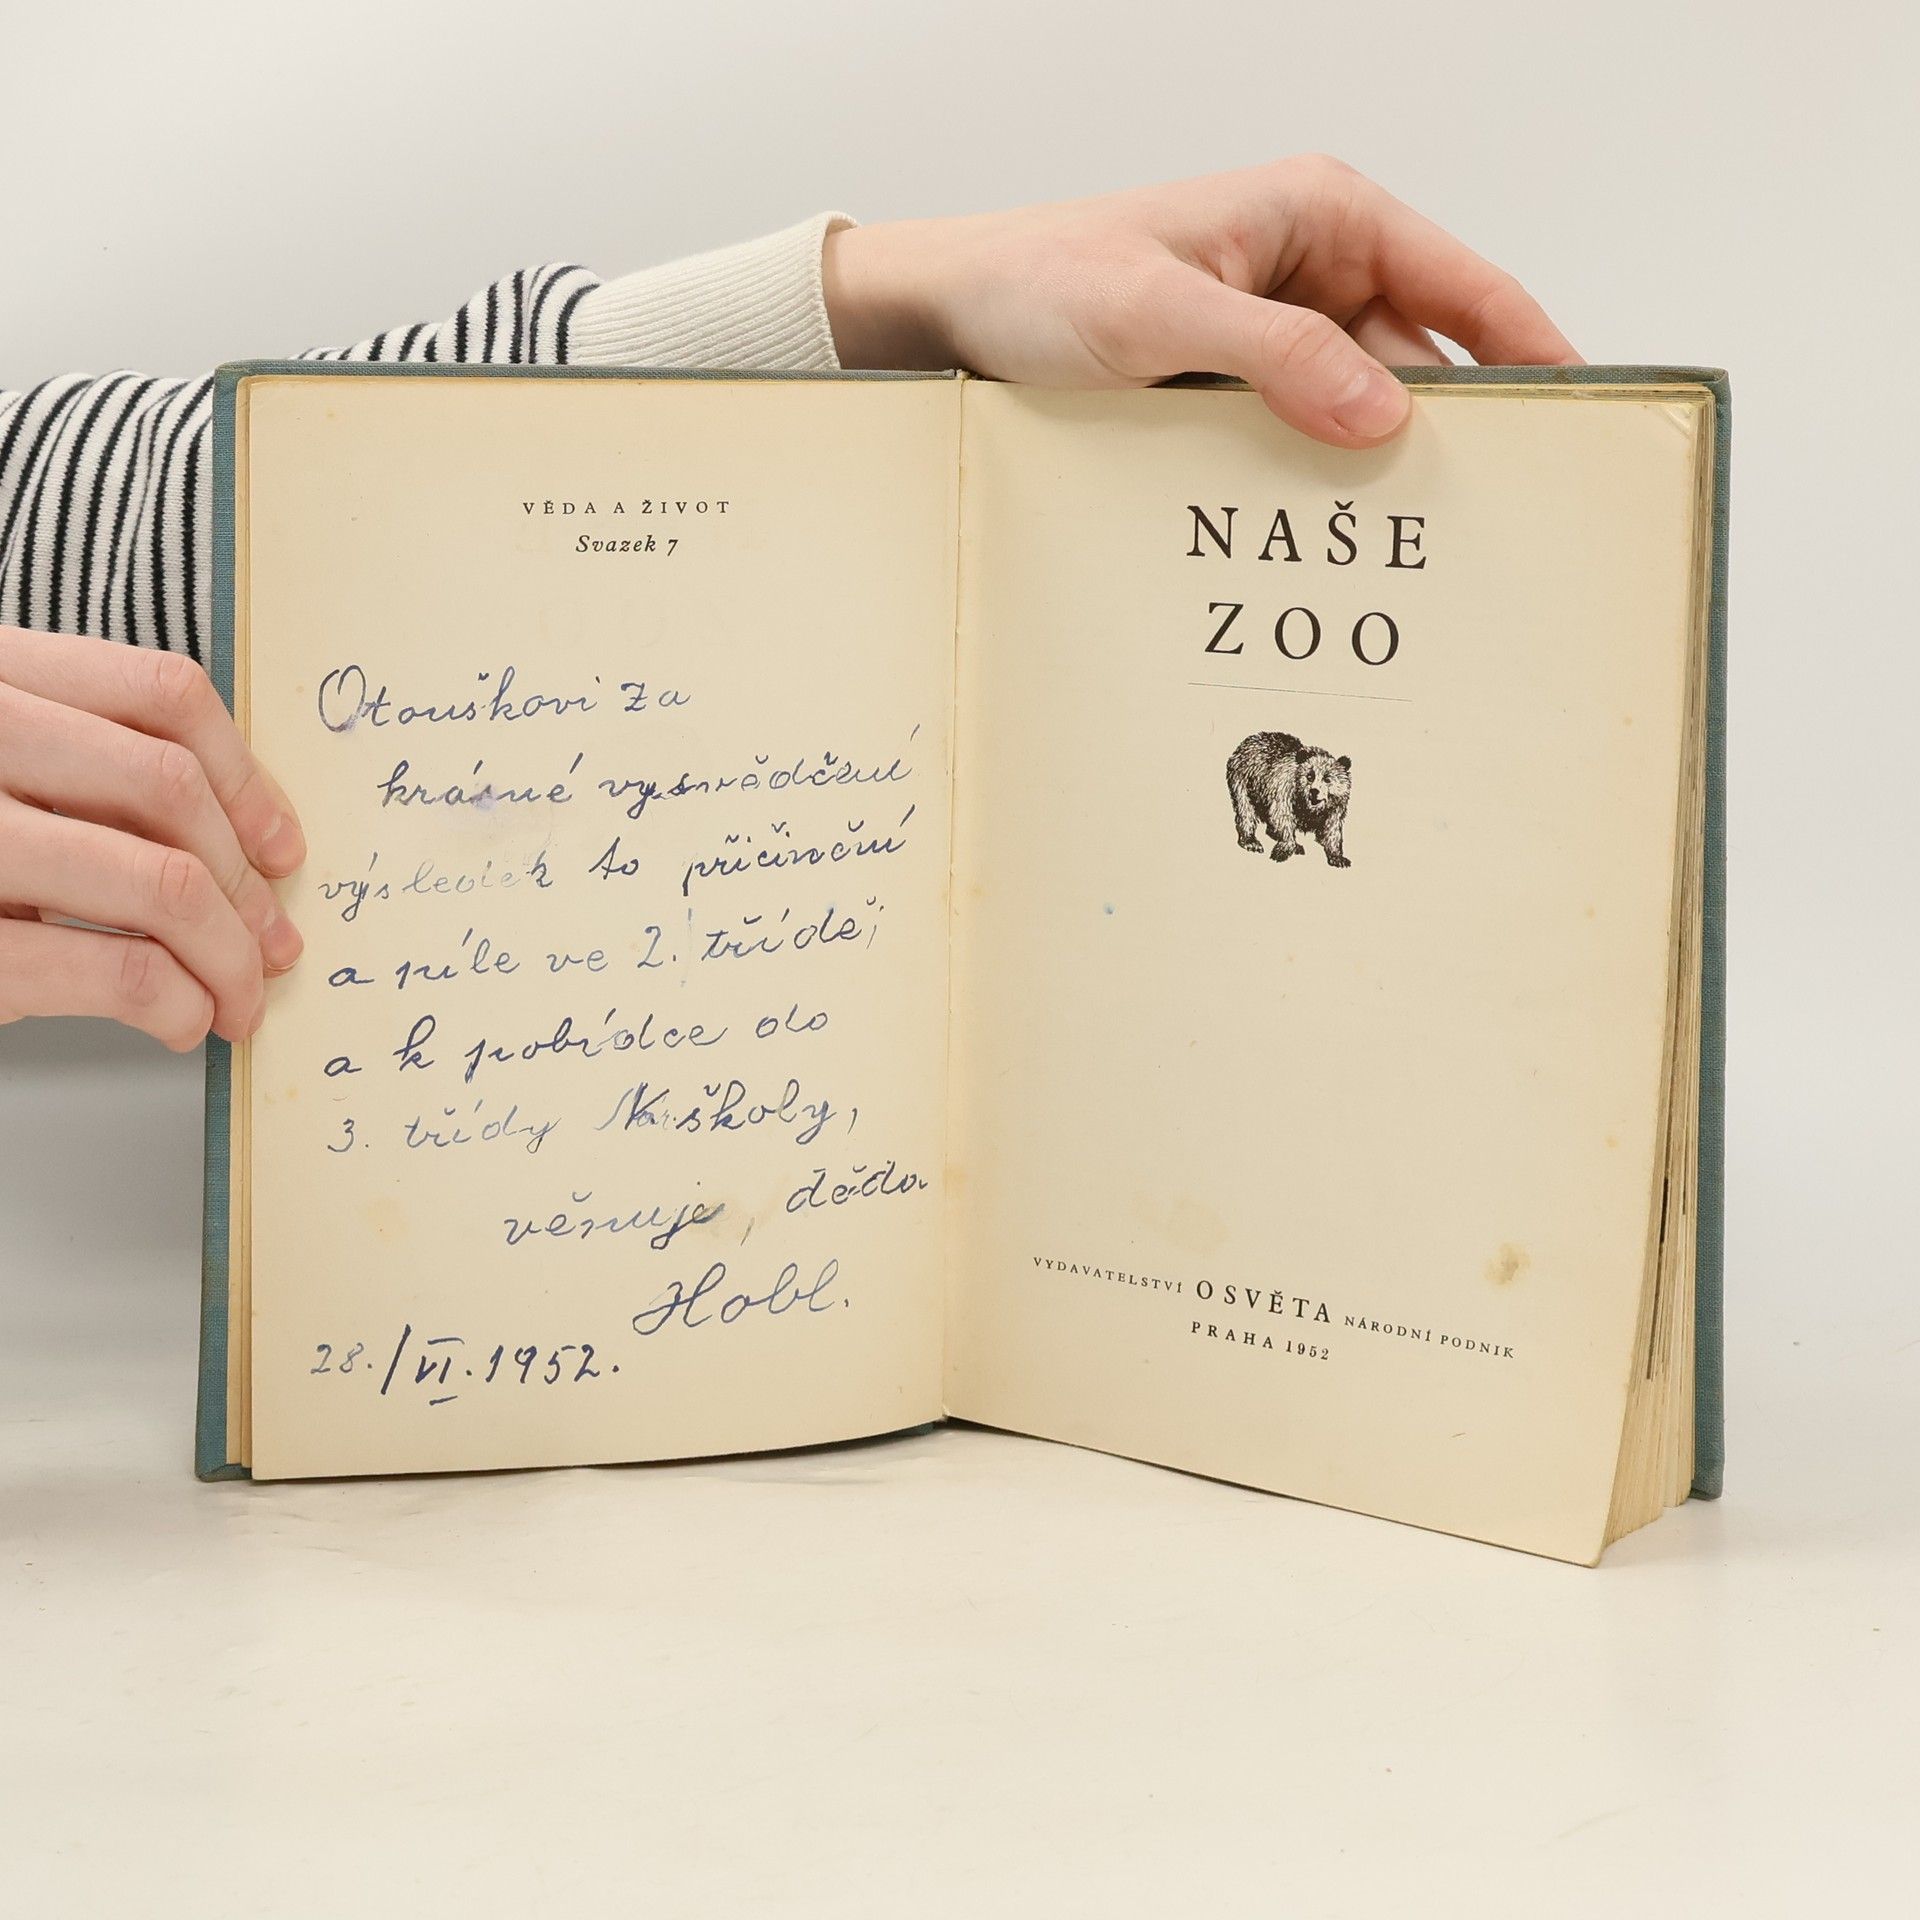 VĚDA A ŽIVOT
Svazek 7
Otouškovi za
krásné vysvědčení
výsledek to přičinění
a píle ve 2. třídě;
a k pobídce do
3. třídy Nár. školy,
věnuje, děda
Hobl.
28./VI. 1952.
NAŠE
ZOO
VYDAVATELSTVÍ OSVĚTA NÁRODNÍ PODNIK
PRAHA 1952